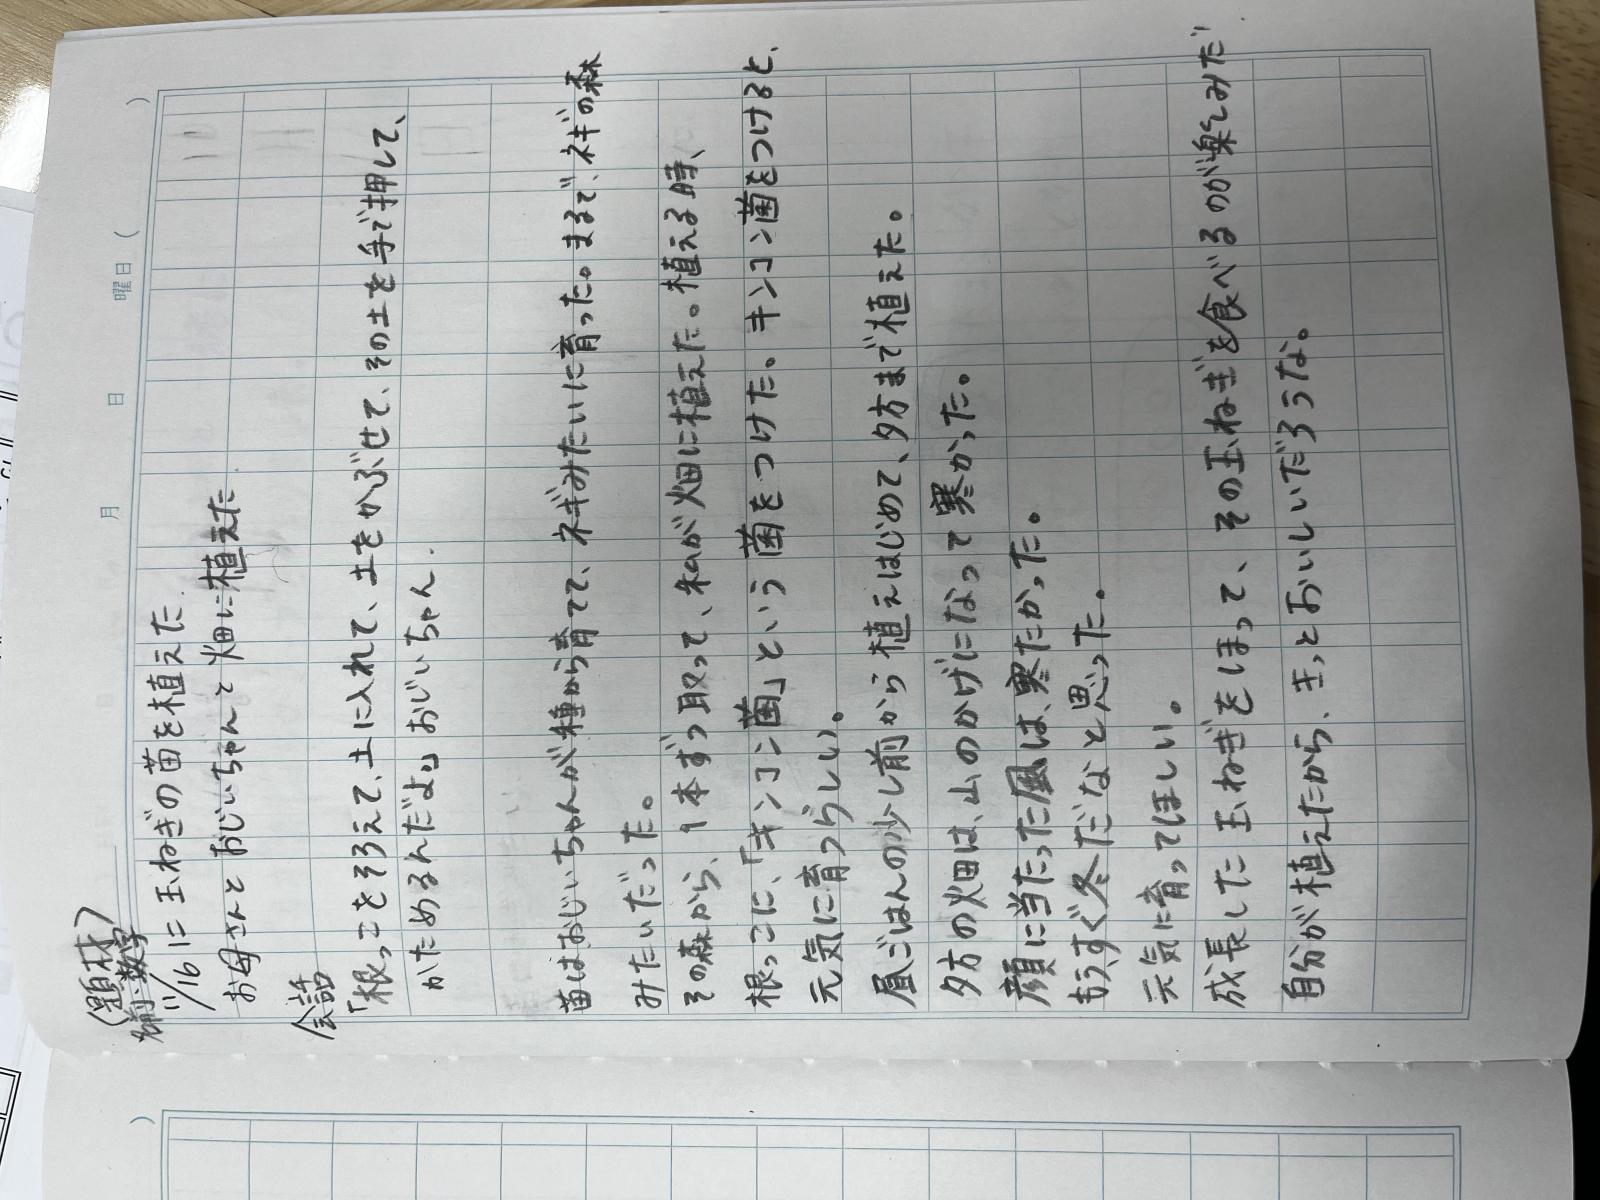 〈題材〉
11/16に玉ねぎの苗を植えた.
お母さんとおじいちゃんと畑に植えた
会話
「根っこをそろえて、土に入れて、土をかぶせて、その土を手で押して、
かためるんだよ」おじいちゃん.
苗はおじいちゃんが種から育てて、ネギみたいに育った。まるで、ネギの森
みたいだった。
その森から、1本ずつ取って、私が畑に植えた。植える時、
根っこに、「キンコン菌」という菌をつけた。キンコン菌をつけると、
元気に育つらしい。
昼ごはんの少し前から植えはじめて、夕方まで植えた。
夕方の畑は、山のかげになって寒かった。
顔に当たった風は、寒たかった。
もうすぐ冬だなと思った。
元気に育ってほしい。
成長した玉ねぎをほって、その玉ねぎを食べるのが楽しみだ
自分が植えたから、きっとおいしいだろうな。
月 日 曜日 ( )